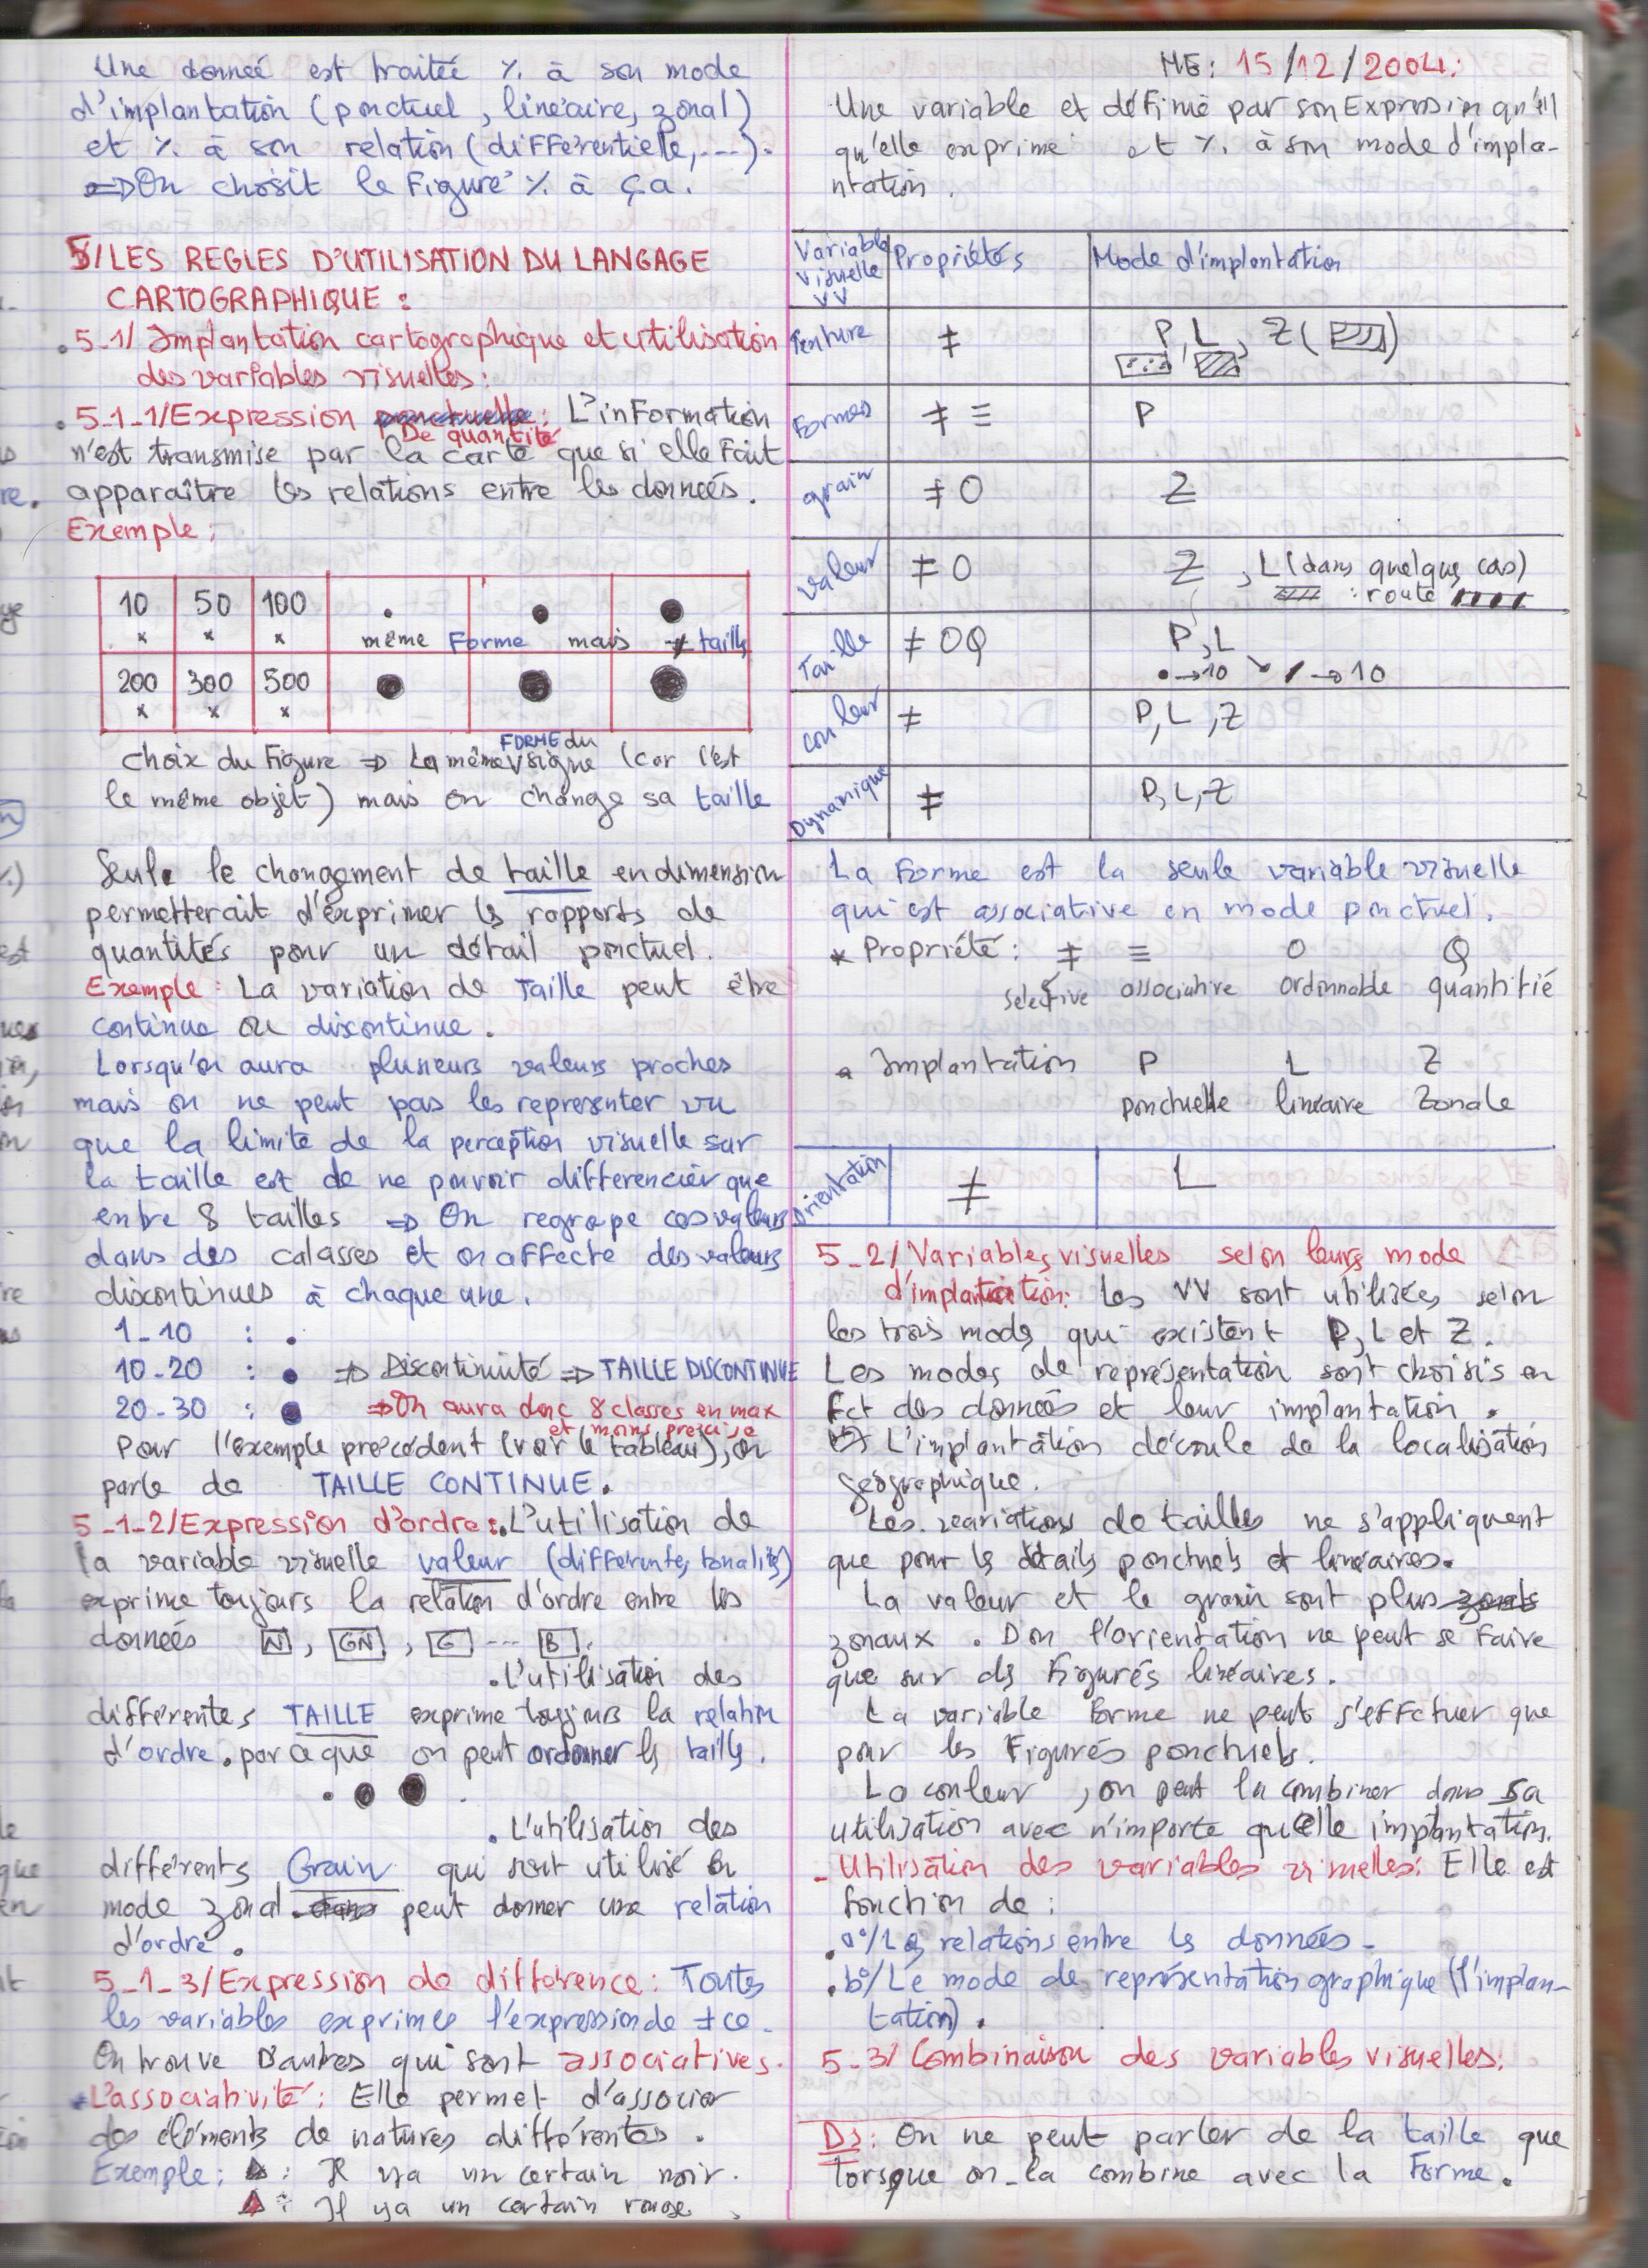 Une donneé est traitée %. à son mode
d'implantation (ponctuel, linéaire, zonal)
et %. à son relation (différentielle, ---).
=> On choisit le Figuré %. à ça.
5/ LES REGLES D'UTILISATION DU LANGAGE
CARTOGRAPHIQUE :
. 5-1/ Implantation cartographique et utilisation
des variables visuelles :
. 5-1-1/ Expression De quantité : L'inFormation
n'est transmise par la carte que si elle Fait
apparaître les relations entre les données.
Exemple :
10 50 100
x x x même Forme mais ≠ taille
200 300 500
x x x
choix du Figure => La même FORME du signe (car c'est
le même objet) mais on change sa taille
Seule le changement de taille en dimension
permetterait d'exprimer les rapports de
quantités pour un détail ponctuel.
Exemple : La variation de Taille peut être
continue ou discontinue.
Lorsqu'on aura plusieurs valeurs proches
mais on ne peut pas les representer vu
que la limite de la perception visuelle sur
la taille est de ne pouvoir differencier que
entre 8 tailles => On regrope ces valeurs
dans des calasses et on affecte des valeurs
discontinues à chaque une.
1-10 : .
10-20 : ● => Discontinuité => TAILLE DISCONTINUE
20-30 : ● => On aura donc 8 classes en max
et moins precise
Pour l'exemple precedent (voir le tableau), on
parle de TAILLE CONTINUE.
5-1-2/ Expression d'ordre : . L'utilisation de
la variable visuelle valeur (différentes tonalités)
exprime toujours la relation d'ordre entre les
données N , GN , G --- B .
. L'utilisation des
différentes TAILLE exprime toujours la relation
d'ordre. parceque on peut ordonner les tailles.
. L'utilisation des
différents Grain qui sont utilisé en
mode zonal peut donner une relation
d'ordre.
5-1-3/ Expression de différence : Toutes
les variables exprimes l'expression de ≠ce.
On trouve D'autres qui sont associatives.
L'associativité : Elle permet d'associer
des éléments de natures différentes.
Exemple : △ : Il ya un certain noir.
△ : Il ya un certain rouge.
ME : 15/12/2004 :
Une variable et déFinie par son Expression qu'ell
qu'elle exprime et %. à son mode d'impla-
ntation.
Variable Visuelle VV Propriétés Mode d'implantation
Texture ≠ P, L, Z ( )
Formes ≠ ≡ P
grain ≠ O Z
valeur ≠ O Z , L (dans quelques cas)
: route
Taille ≠ OQ P, L
. → 10 → 10
couleur ≠ P, L, Z
Dynamique ≠ P, L, Z
La Forme est la seule variable visuelle
qui est associative en mode ponctuel.
* Propriété : ≠ ≡ O Q
sélective associative ordonnable quantitié
. Implantation P L Z
ponctuelle linéaire Zonale
Orientation ≠ L
5-2/ Variables visuelles selon leurs mode
d'implantation : Les VV sont utilisées selon
les trois modes qui existent P, L et Z.
Les modes de représentation sont choisis en
Fct des données et leur implantation.
L'implantation découle de la localisation
géographique.
Les variations de tailles ne s'appliquent
que pour les détails ponctuels et linéaires.
La valeur et le grain sont plus
zonaux. Don l'orientation ne peut se faire
que sur des Figurés linéaires.
La variable Forme ne peut s'effctuer que
pour les Figurés ponctuels.
La couleur , on peut la combiner dans sa
utilisation avec n'importe quelle implantation.
- Utilisation des variables visuelles : Elle est
fonction de :
. a°/ Les relations entre les données -
. b°/ Le mode de représentation graphique (l'implan-
tation).
5-3/ Combinaison des variables visuelles :
Ds : On ne peut parler de la taille que
lorsque on la combine avec la Forme.